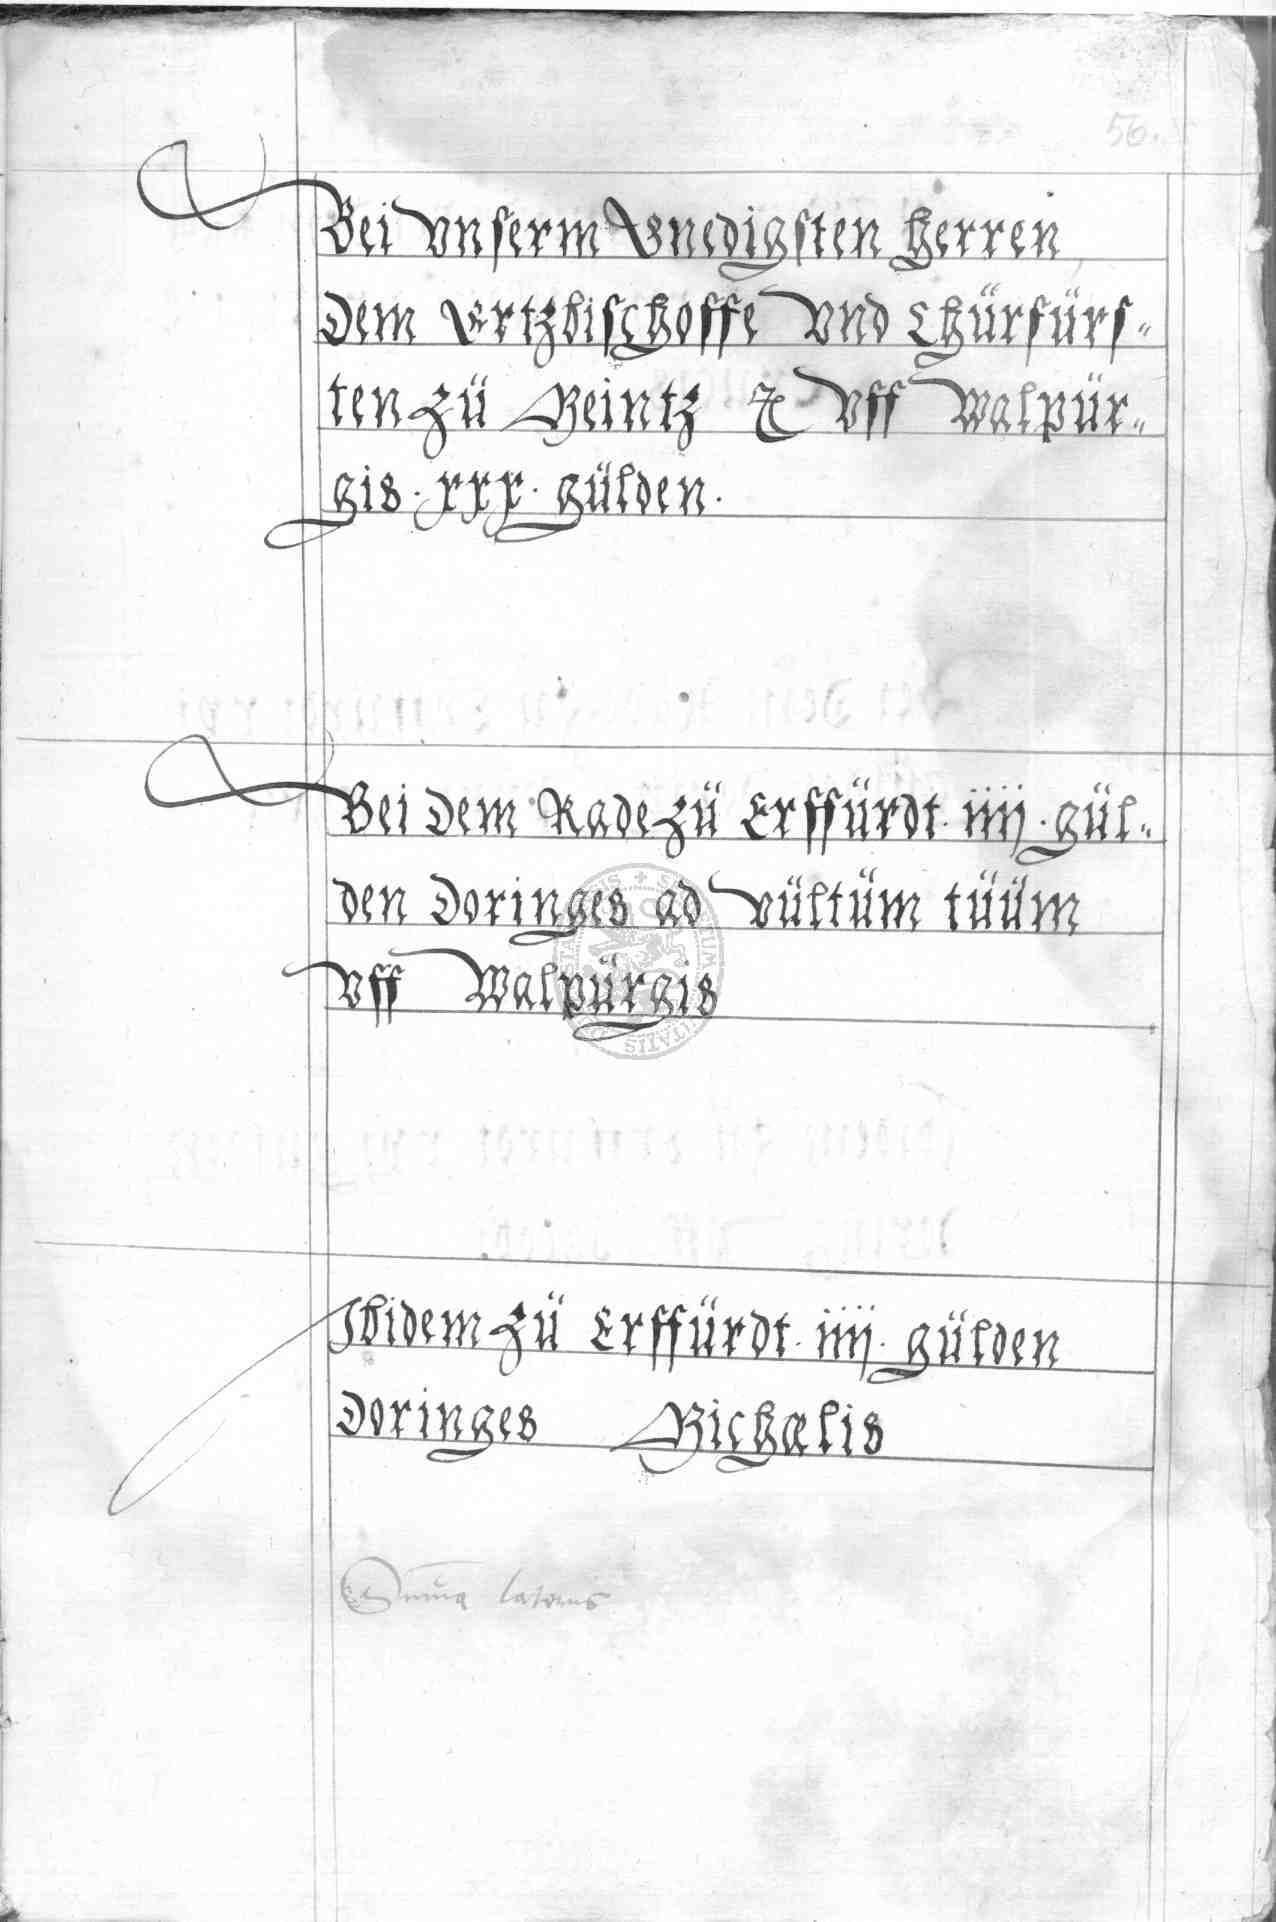 56.
Bei vnserm Gnedigsten herren
dem Ertzbischoffe vnd Chürfürs-
ten zü Meintz ꝛc vff Walpür-
gis . xxx . gülden .
Bei dem Rade zü Erffürdt . iiij . gül-
den Doringes ad vültüm tüüm
vff Walpürgis
Ibidem zü Erffürdt . iiij . gülden
Doringes Michælis
Summa lateris